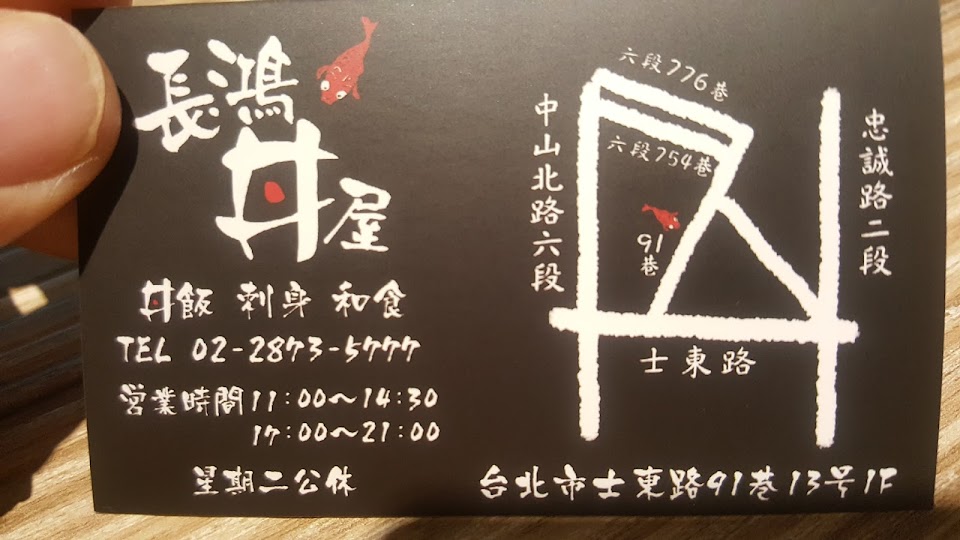 長鴻
丼屋
丼飯 刺身 和食
TEL 02-2873-5777
営業時間11:00~14:30
17:00~21:00
星期二公休
六段776巷
六段754巷
中山北路六段
忠誠路二段
91巷
士東路
台北市士東路91巷13号1F